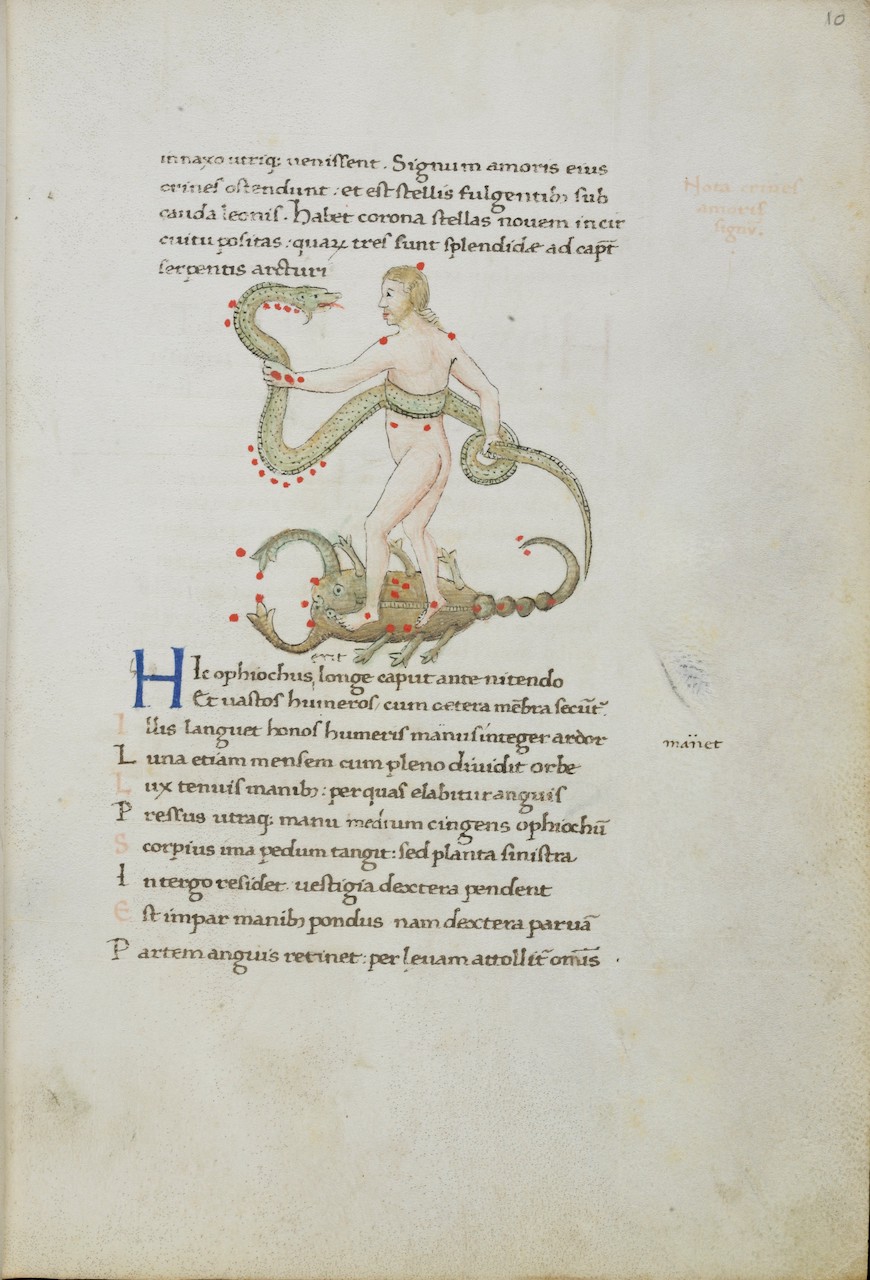 10
in naxo utriq; uenissent. Signum amoris eius
crines ostendunt: et est stellis fulgentib; sub
cauda leonis. Habet corona stellas nouem in cir
cuitu positas: quaꝝ tres sunt splendidæ ad cap̄t
serpentis arcturi
Nota crines
amoris
signũ.
erit
HIc ophiochus longe caput ante nitendo
Et uastos humeros, cum cetera mēbra secũt᷑
Illis languet honos humeris manus integer ardor
manet
Luna etiam mensem cum pleno diuidit orbe
Lux tenuis manib; : per quas elabitur anguis
Pressus utraq; manu medium cingens ophiochũ
Scorpius ima pedum tangit: sed planta sinistra
In tergo residet. uestigia dextera pendent
Est impar manib; pondus nam dextera paruã
Partem anguis retinet: per leuam attollit᷑ om̄is.